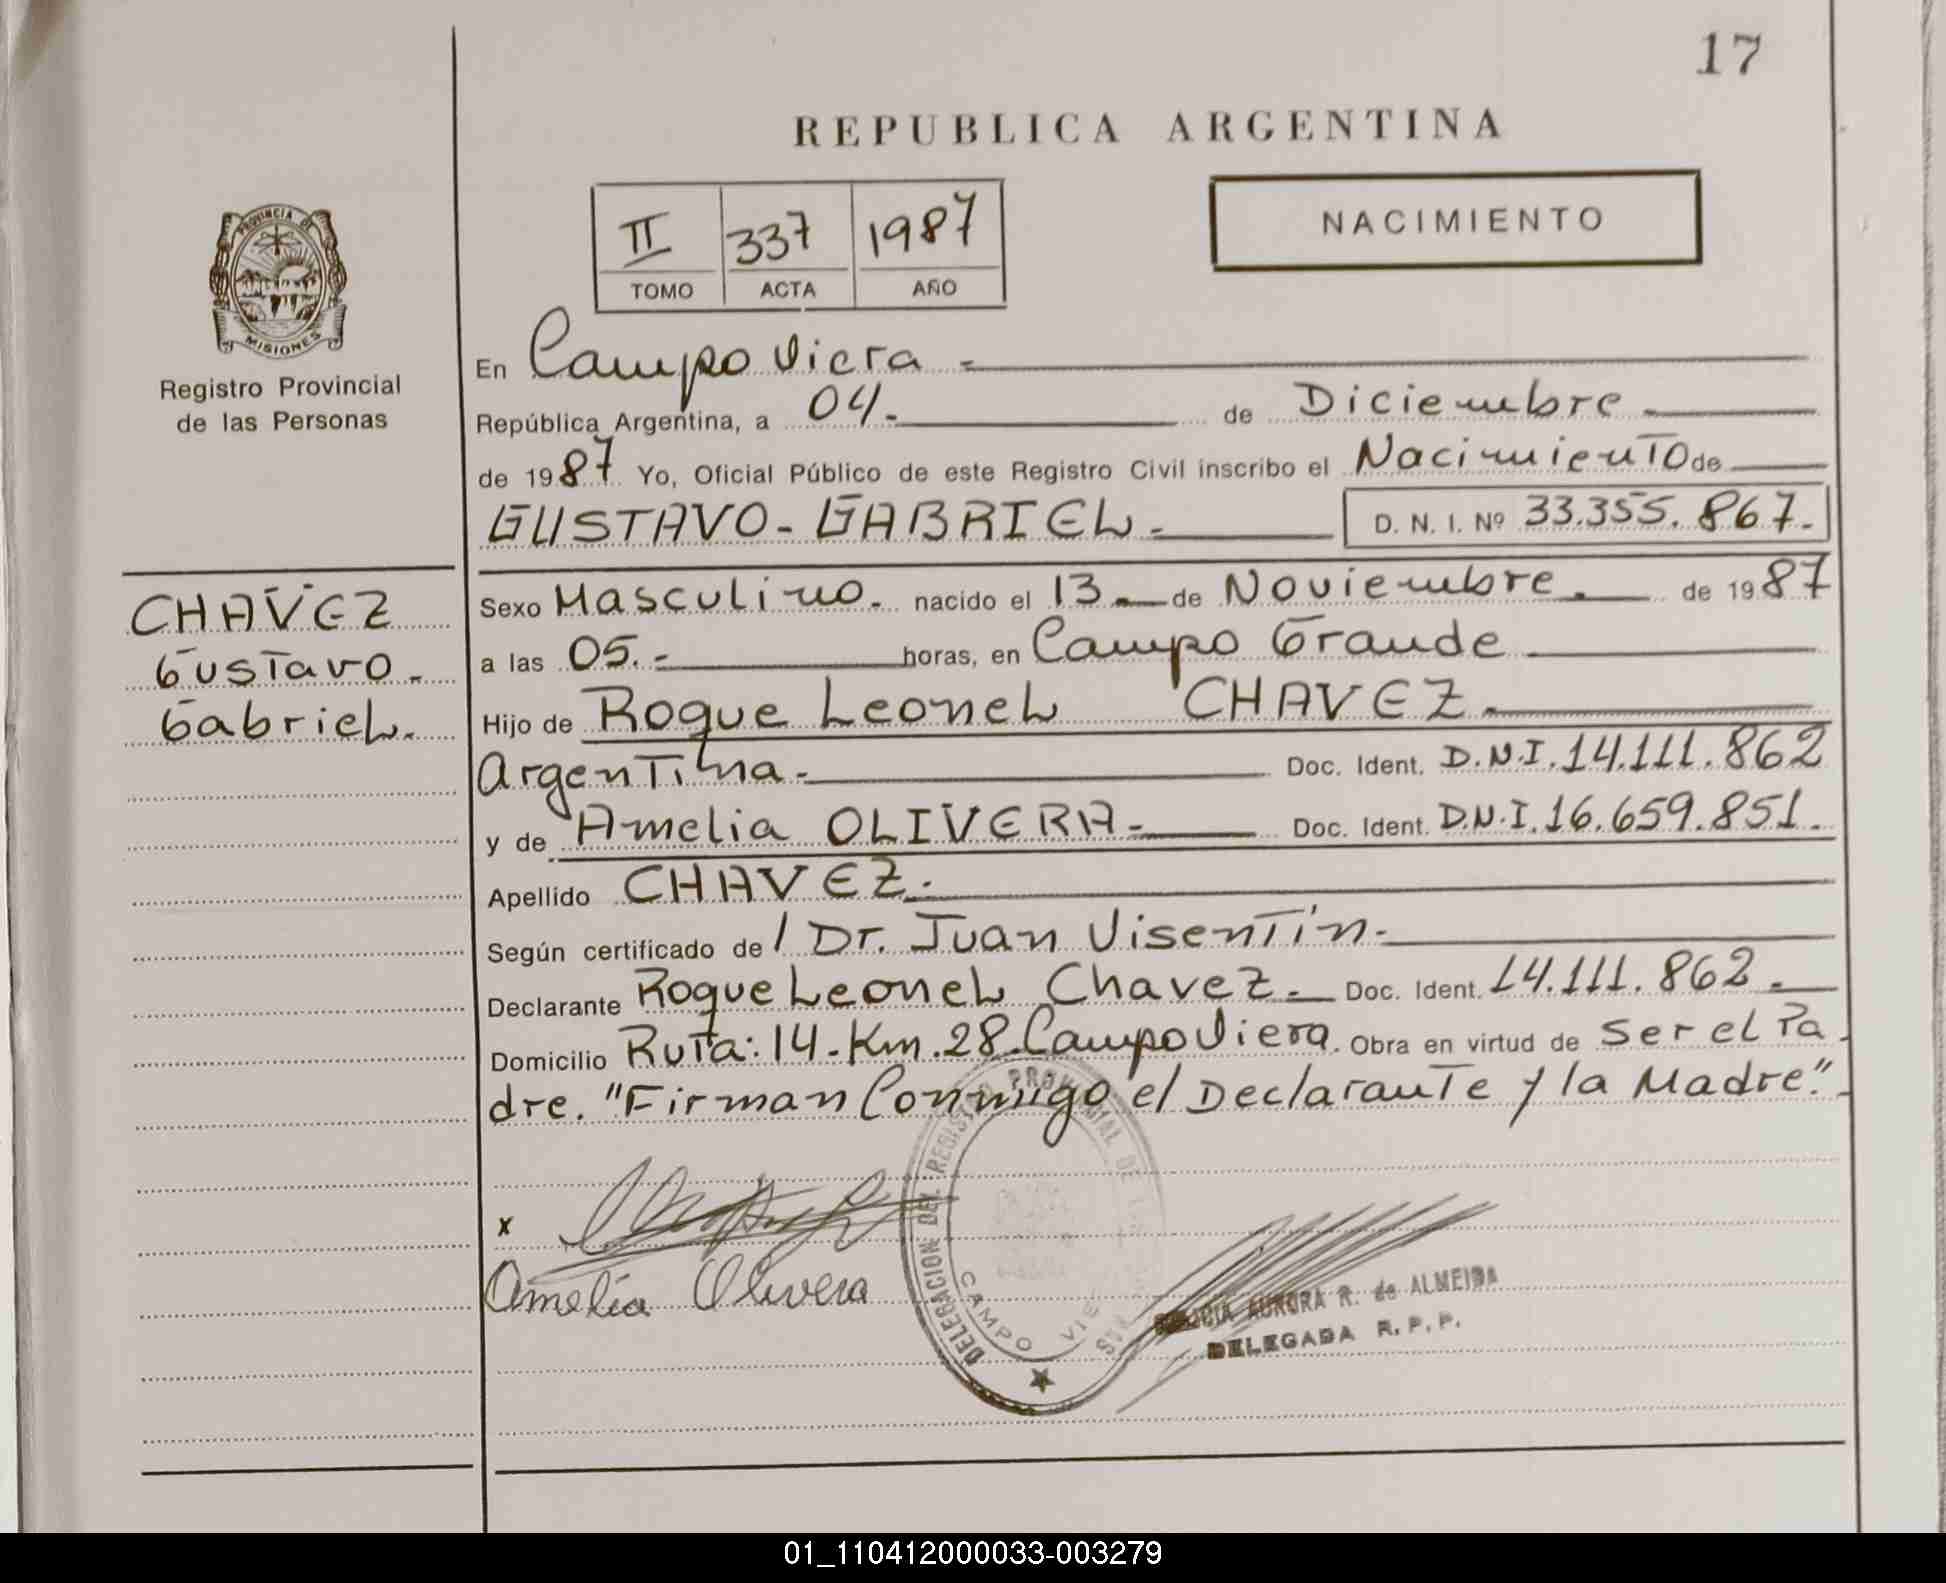 17
REPUBLICA ARGENTINA
II 337 1987
TOMO ACTA AÑO
NACIMIENTO
PROVINCIA DE
MISIONES
Registro Provincial
de las Personas
CHAVEZ
Gustavo.
Gabriel.
En Campo Viera -
República Argentina, a 04. de Diciembre
de 1987 Yo, Oficial Público de este Registro Civil inscribo el Nacimiento de
GUSTAVO - GABRIEL - D. N. I. Nº 33.355.867.
Sexo Masculino. nacido el 13 de Noviembre. de 1987
a las 05.- horas, en Campo Grande
Hijo de Roque Leonel CHAVEZ.
Argentina - Doc. Ident. D.N.I. 14.111.862
y de Amelia OLIVERA - Doc. Ident. D.N.I. 16.659.851.
Apellido CHAVEZ.
Según certificado de / Dr. Juan Visentín -
Declarante Roque Leonel Chavez. Doc. Ident. 14.111.862.
Domicilio Ruta: 14 - Km. 28. Campo Viera. Obra en virtud de Ser el Pa
dre. "Firman Conmigo el Declarante y la Madre".
x
Amelia Olivera
DELEGACION DEL REGISTRO PROVINCIAL DE
CAMPO
AURORA R. de ALMEIDA
DELEGADA R. P. P.
01_110412000033-003279